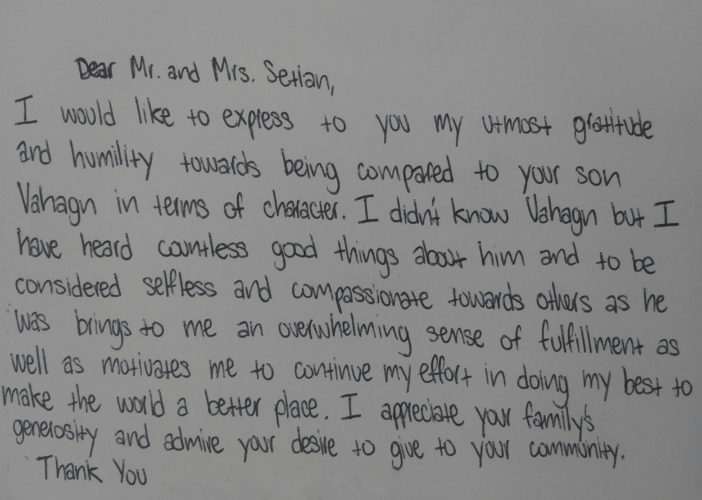 Dear Mr. and Mrs. Setian,
I would like to express to you my utmost gratitude
and humility towards being compared to your son
Vahagn in terms of character. I didn't know Vahagn but I
have heard countless good things about him and to be
considered selfless and compassionate towards others as he
was brings to me an overwhelming sense of fulfillment as
well as motivates me to continue my effort in doing my best to
make the world a better place. I appreciate your family's
generosity and admire your desire to give to your community.
Thank You